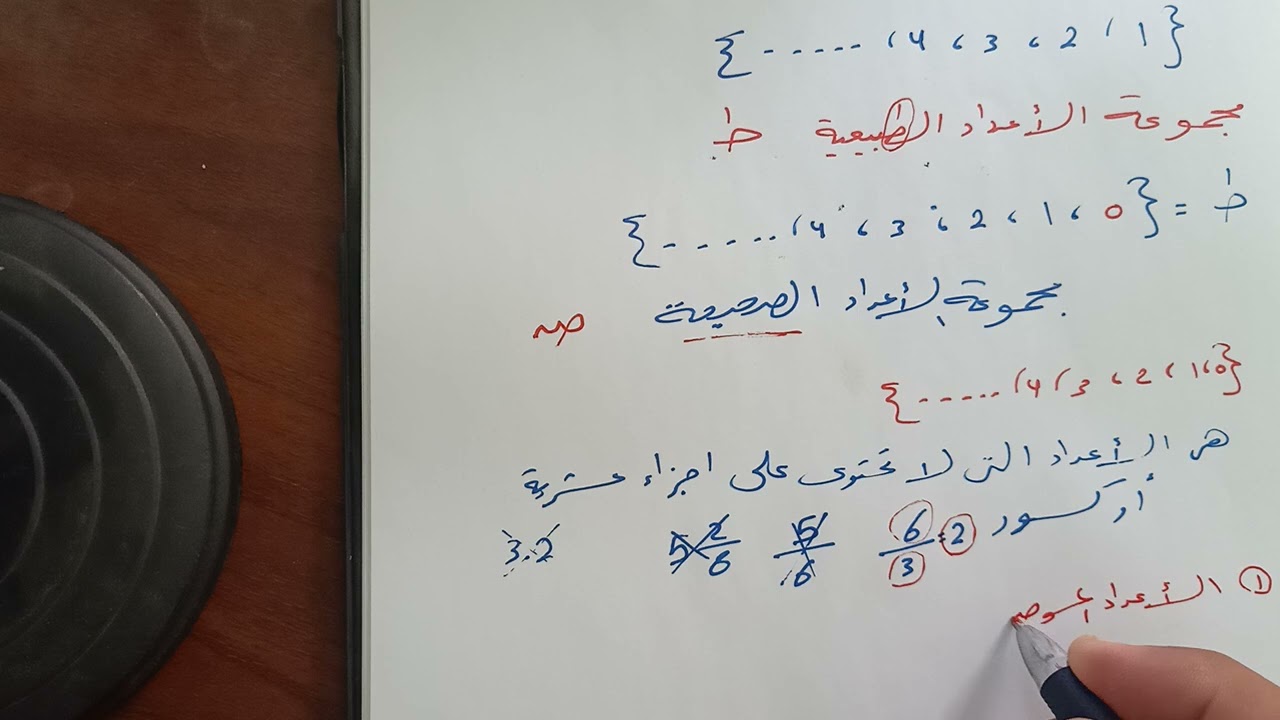 {1، 2، 3، 4، ......}
مجموعة الأعداد الطبيعية ط
ط = {0، 1، 2، 3، 4، ......}
مجموعة الأعداد الصحيحة صہ
{0، 1، 2، 3، 4، ......}
هى الأعداد التى لا تحتوى على اجزاء عشرية
أو كسور 6/3 = 2 5/6 5 2/6 3.2
① الأعداد